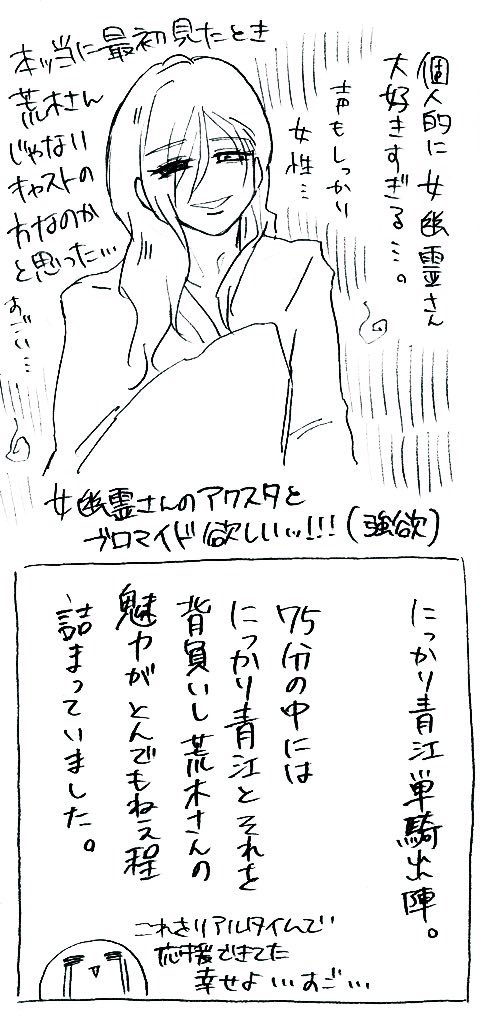 個人的に女幽霊さん
大好きすぎる…。
声もしっかり
女性…
本当に最初見たとき
荒木さん
じゃない
キャストの
方なのか
と思った…
すごい…
女幽霊さんのアクスタと
ブロマイド欲しいッ!!!(強欲)
にっかり青江単騎出陣。
75分の中には
にっかり青江とそれを
背負いし荒木さんの
魅力がとんでもねえ程
詰まっていました。
これをリアルタイムで
応援できてた
幸せよ…すご…